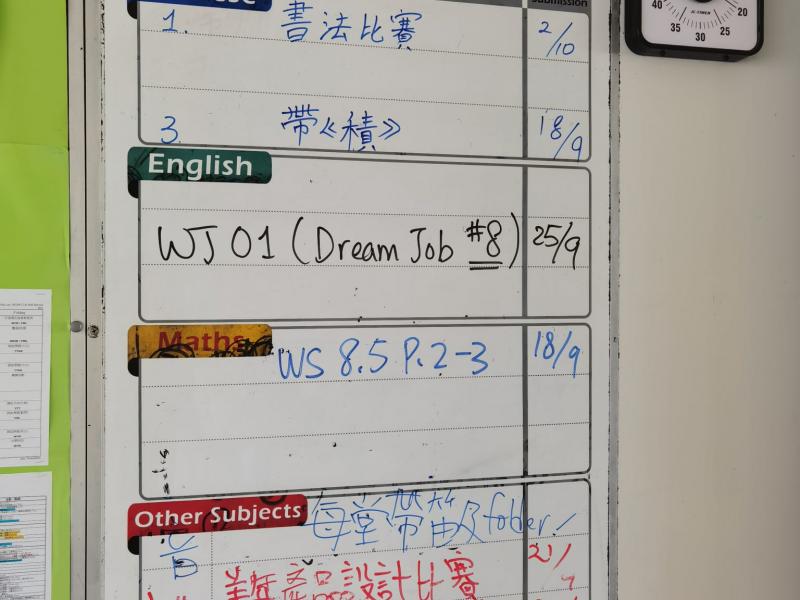 Submission
1. 書法比賽 2/10
3. 帶《積》 18/9
English
WJ 01 (Dream Job #8) 25/9
Maths
WS 8.5 P.2-3 18/9
Other Subjects
每堂帶笛及folder
設計比賽 21/
40 35 30 25 20